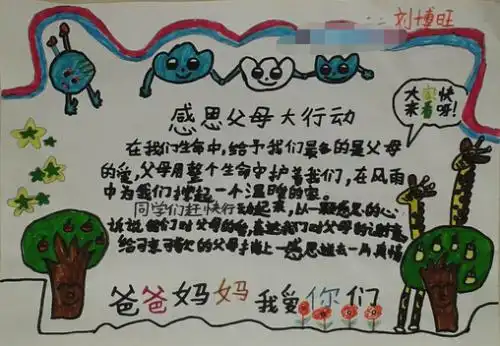 刘博旺
感恩父母大行动
大家快
来看呀!
在我们生命中,给予我们最多的是父母
的爱,父母用整个生命守护着我们,在风雨
中为我们撑起一个温暖的家。
同学们赶快行动起来,从一颗感恩的心
诉说我们对父母的 表达我们对父母的谢意
给可亲可敬的父母 上一 感恩 去一片真情
爸爸妈妈我爱你们